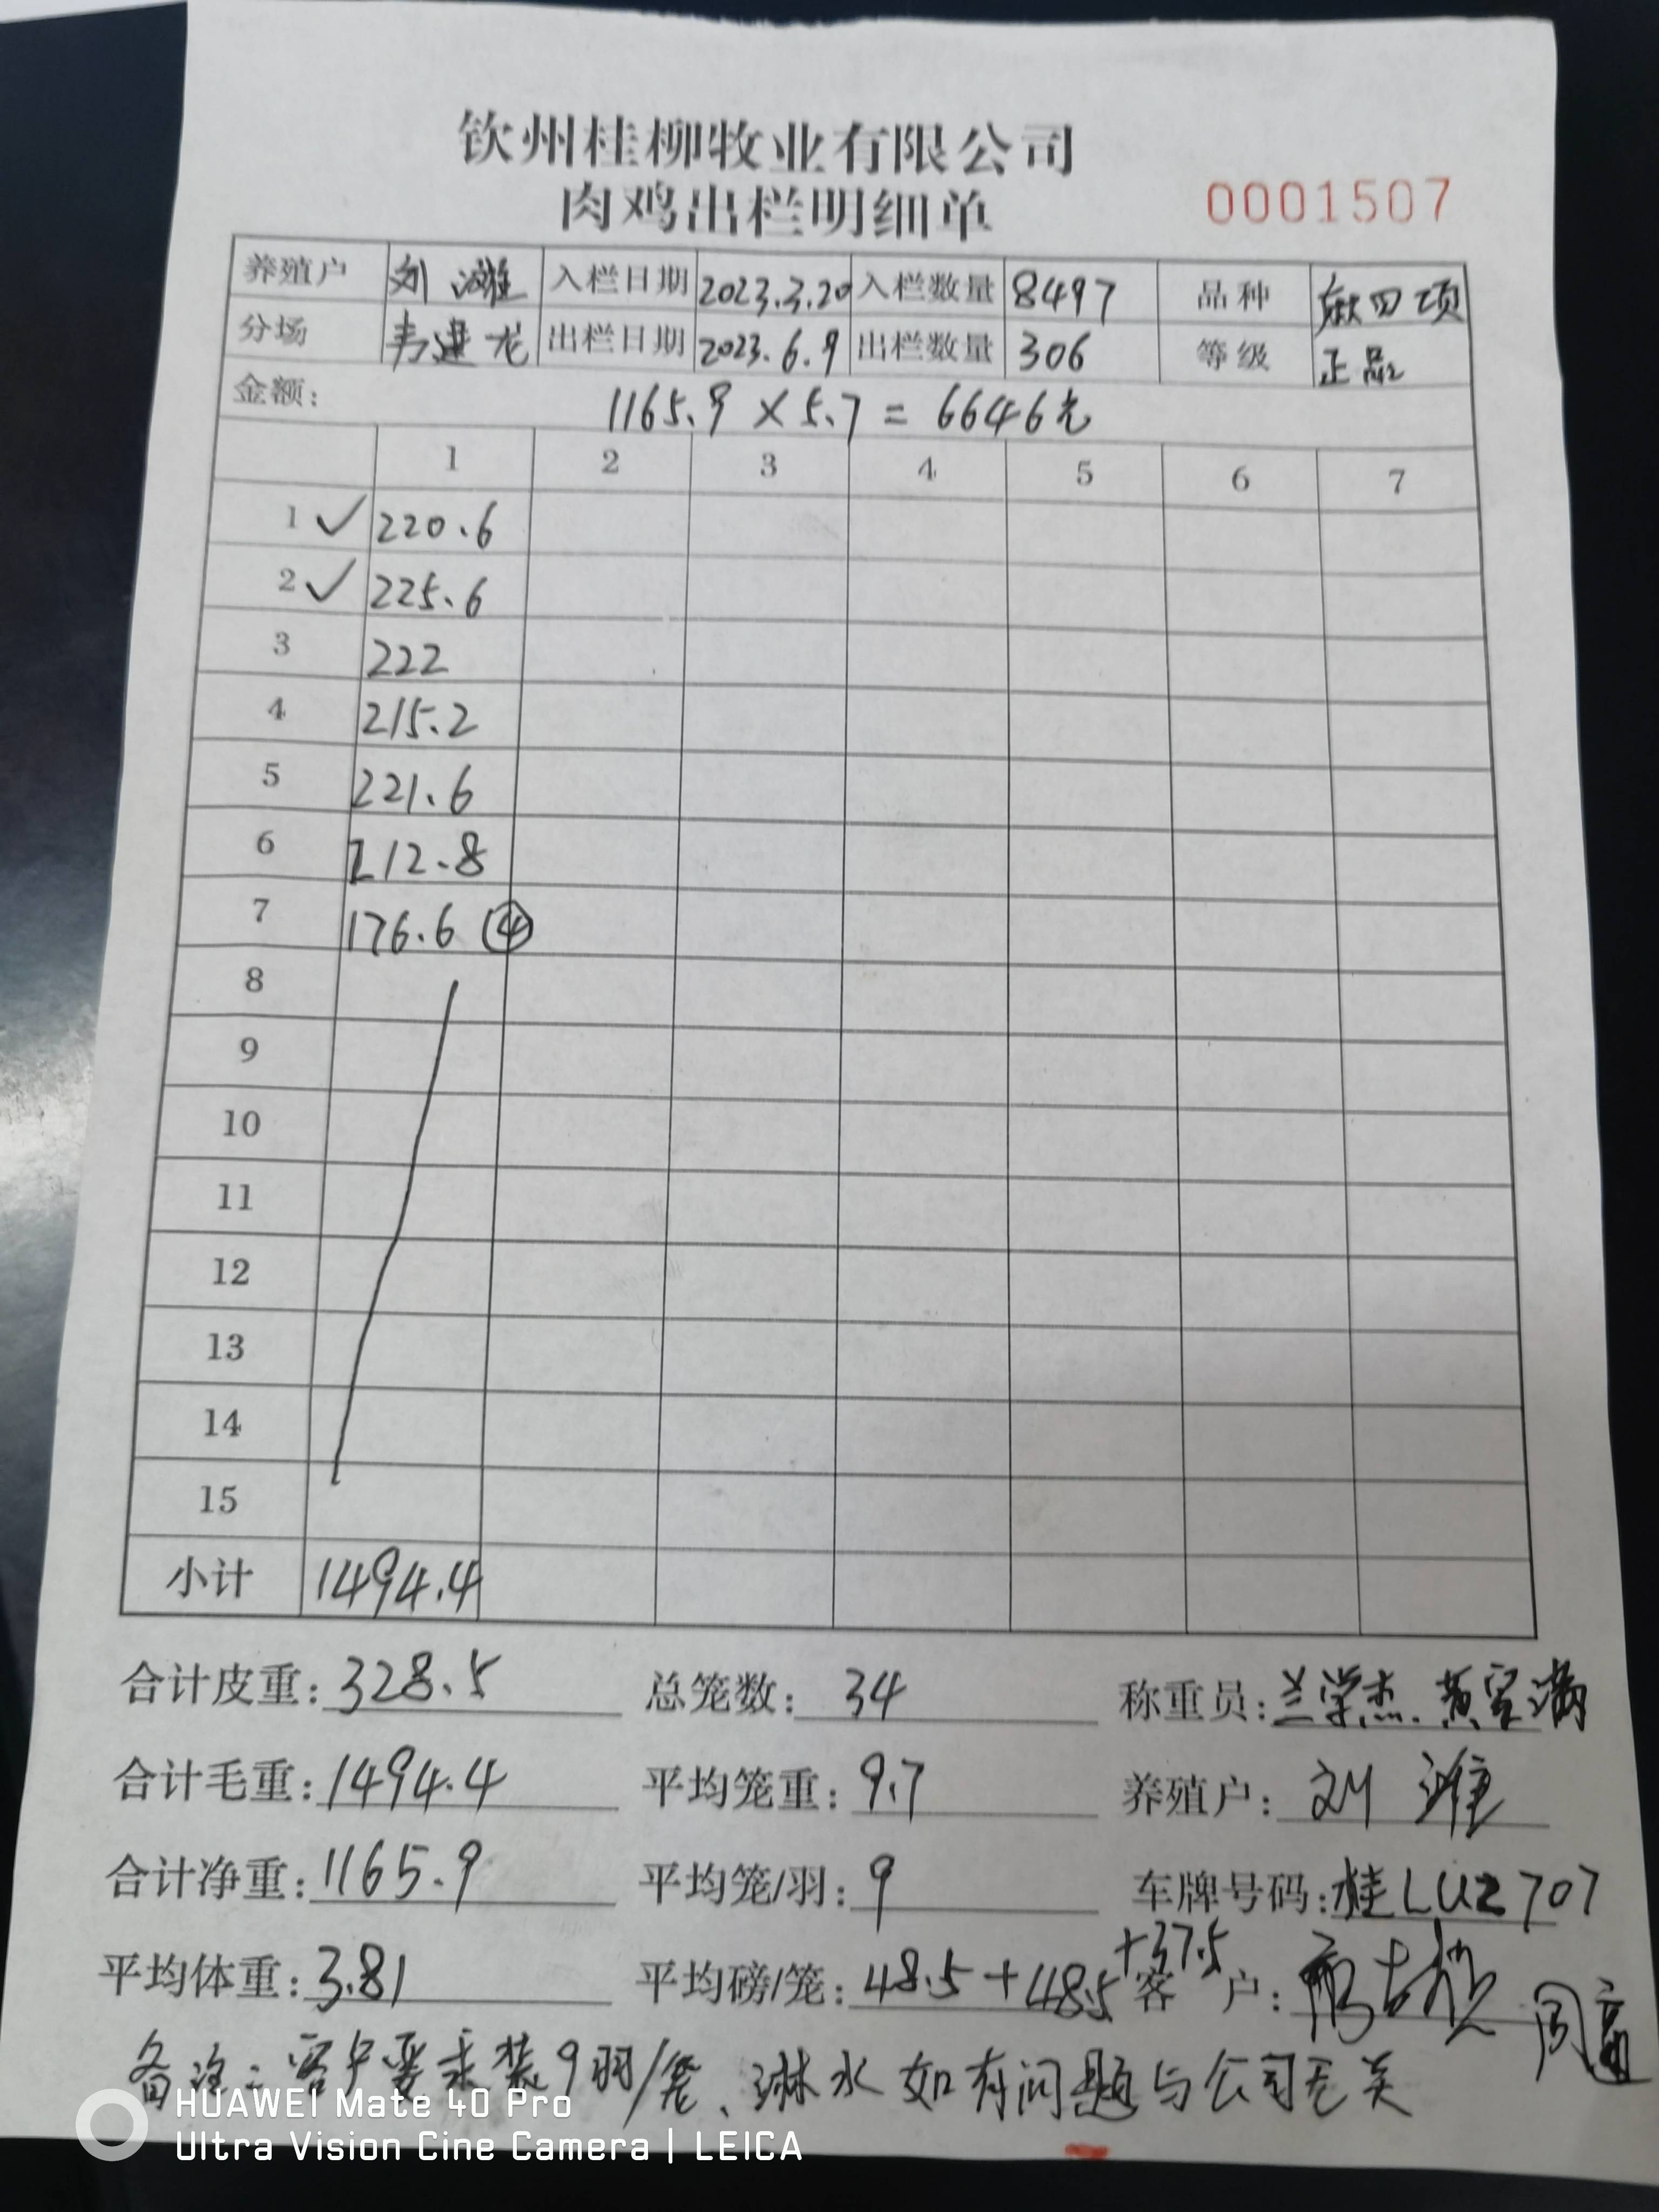 钦州桂柳牧业有限公司
肉鸡出栏明细单 0001507
养殖户 刘 滩 入栏日期 2023.3.20 入栏数量 8497 品种
分场 韦建龙 出栏日期 2023.6.9 出栏数量 306 等级 正品
金额: 1165.9 × 5.7 = 6646元
1 2 3 4 5 6 7
1 ✓ 220.6
2 ✓ 225.6
3 222
4 215.2
5 221.6
6 212.8
7 176.6 ④
8
9
10
11
12
13
14
15
小计 1494.4
合计皮重: 328.5 总笼数: 34 称重员: 兰学杰.
合计毛重: 1494.4 平均笼重: 9.7 养殖户: 刘
合计净重: 1165.9 平均笼/羽: 9 车牌号码: 桂LU2707
平均体重: 3.81 平均磅/笼: 48.5+48.5+37.5 客 户:
备注: 客户要求装9羽/笼、淋水如有问题与公司无关
HUAWEI Mate 40 Pro
Ultra Vision Cine Camera | LEICA